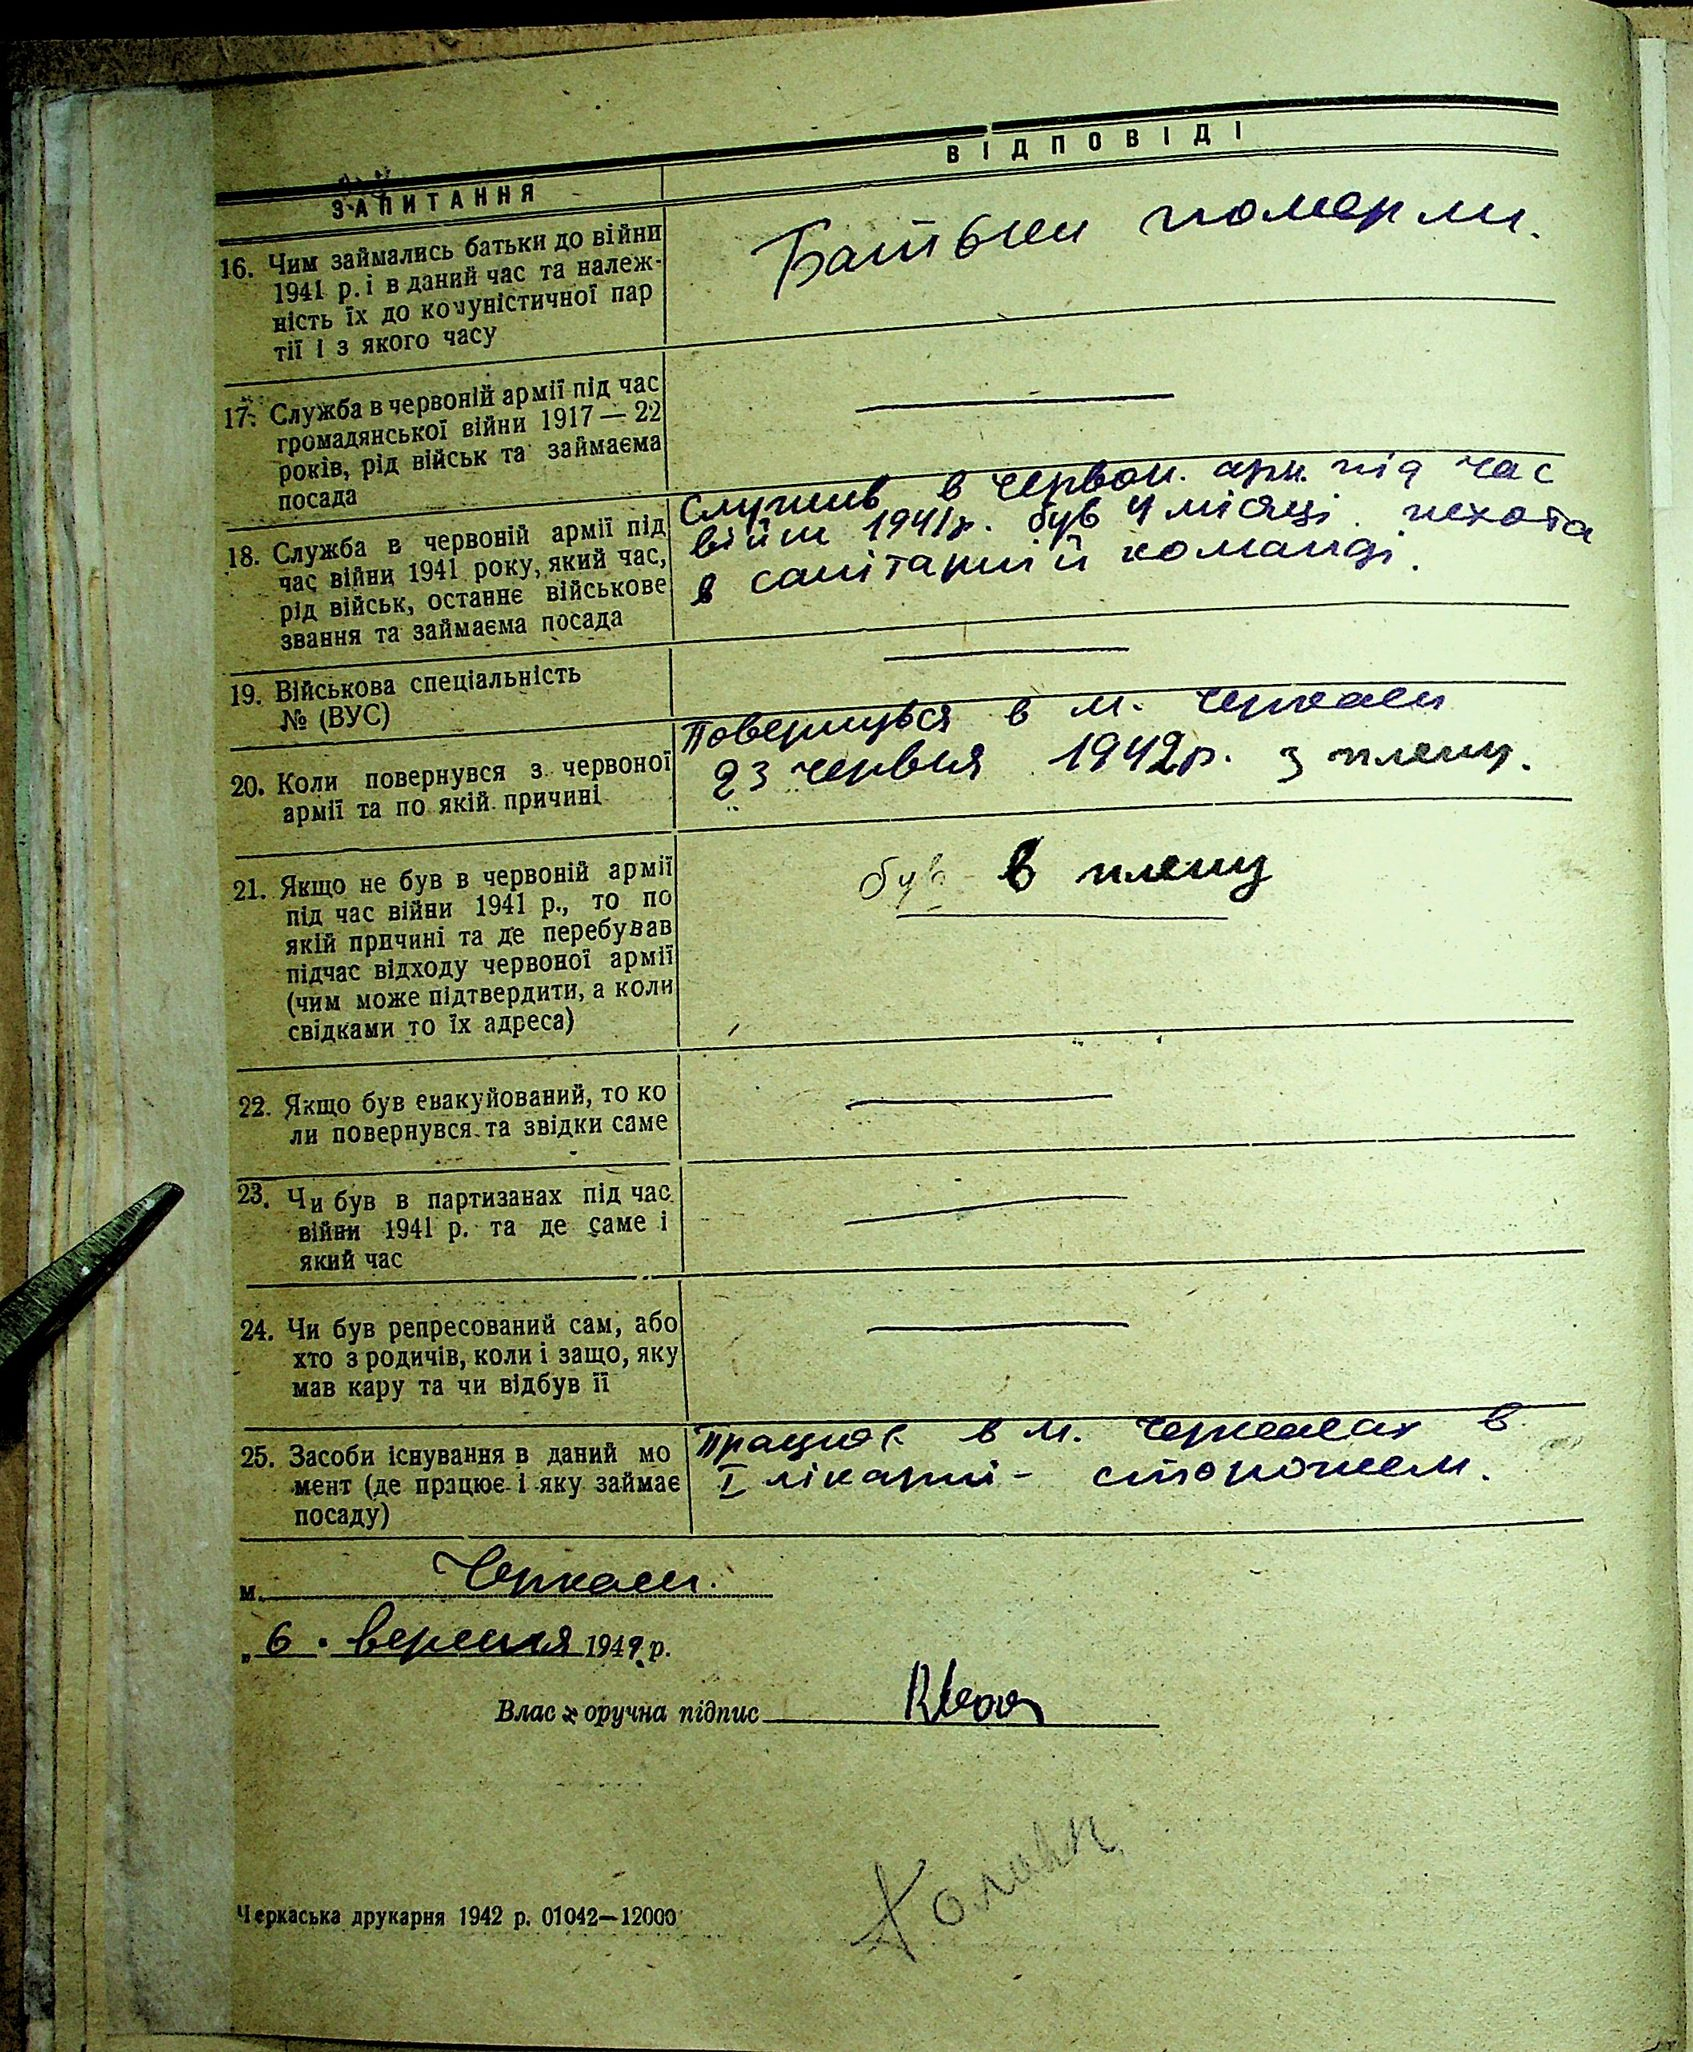 ЗАПИТАННЯ
ВІДПОВІДІ
16. Чим займались батьки до війни
1941 р. і в даний час та належ-
ність їх до комуністичної пар
тії і з якого часу
Батьки померли.
17. Служба в червоній армії під час
громадянської війни 1917 — 22
років, рід військ та займаєма
посада
18. Служба в червоній армії під
час війни 1941 року, який час,
рід військ, останнє військове
звання та займаєма посада
Служив в червон. арм. під час
війни 1941р. був 4 місяці. пехота
в санітарній команді.
19. Військова спеціальність
№ (ВУС)
20. Коли повернувся з червоної
армії та по якій причині
Повернувся в м. Черкаси
23 червня 1942р. з плену.
21. Якщо не був в червоній армії
під час війни 1941 р., то по
якій причині та де перебував
підчас відходу червоної армії
(чим може підтвердити, а коли
свідками то їх адреса)
був в плену
22. Якщо був евакуйований, то ко
ли повернувся та звідки саме
23. Чи був в партизанах під час
війни 1941 р. та де саме і
який час
24. Чи був репресований сам, або
хто з родичів, коли і защо, яку
мав кару та чи відбув її
25. Засоби існування в даний мо
мент (де працює і яку займає
посаду)
Працює в м. Черкасах в
I лікарні - сторожем.
м. Черкаси.
„ 6 . вересня 1942 р.
Власноручна підпис
Черкаська друкарня 1942 р. 01042—12000